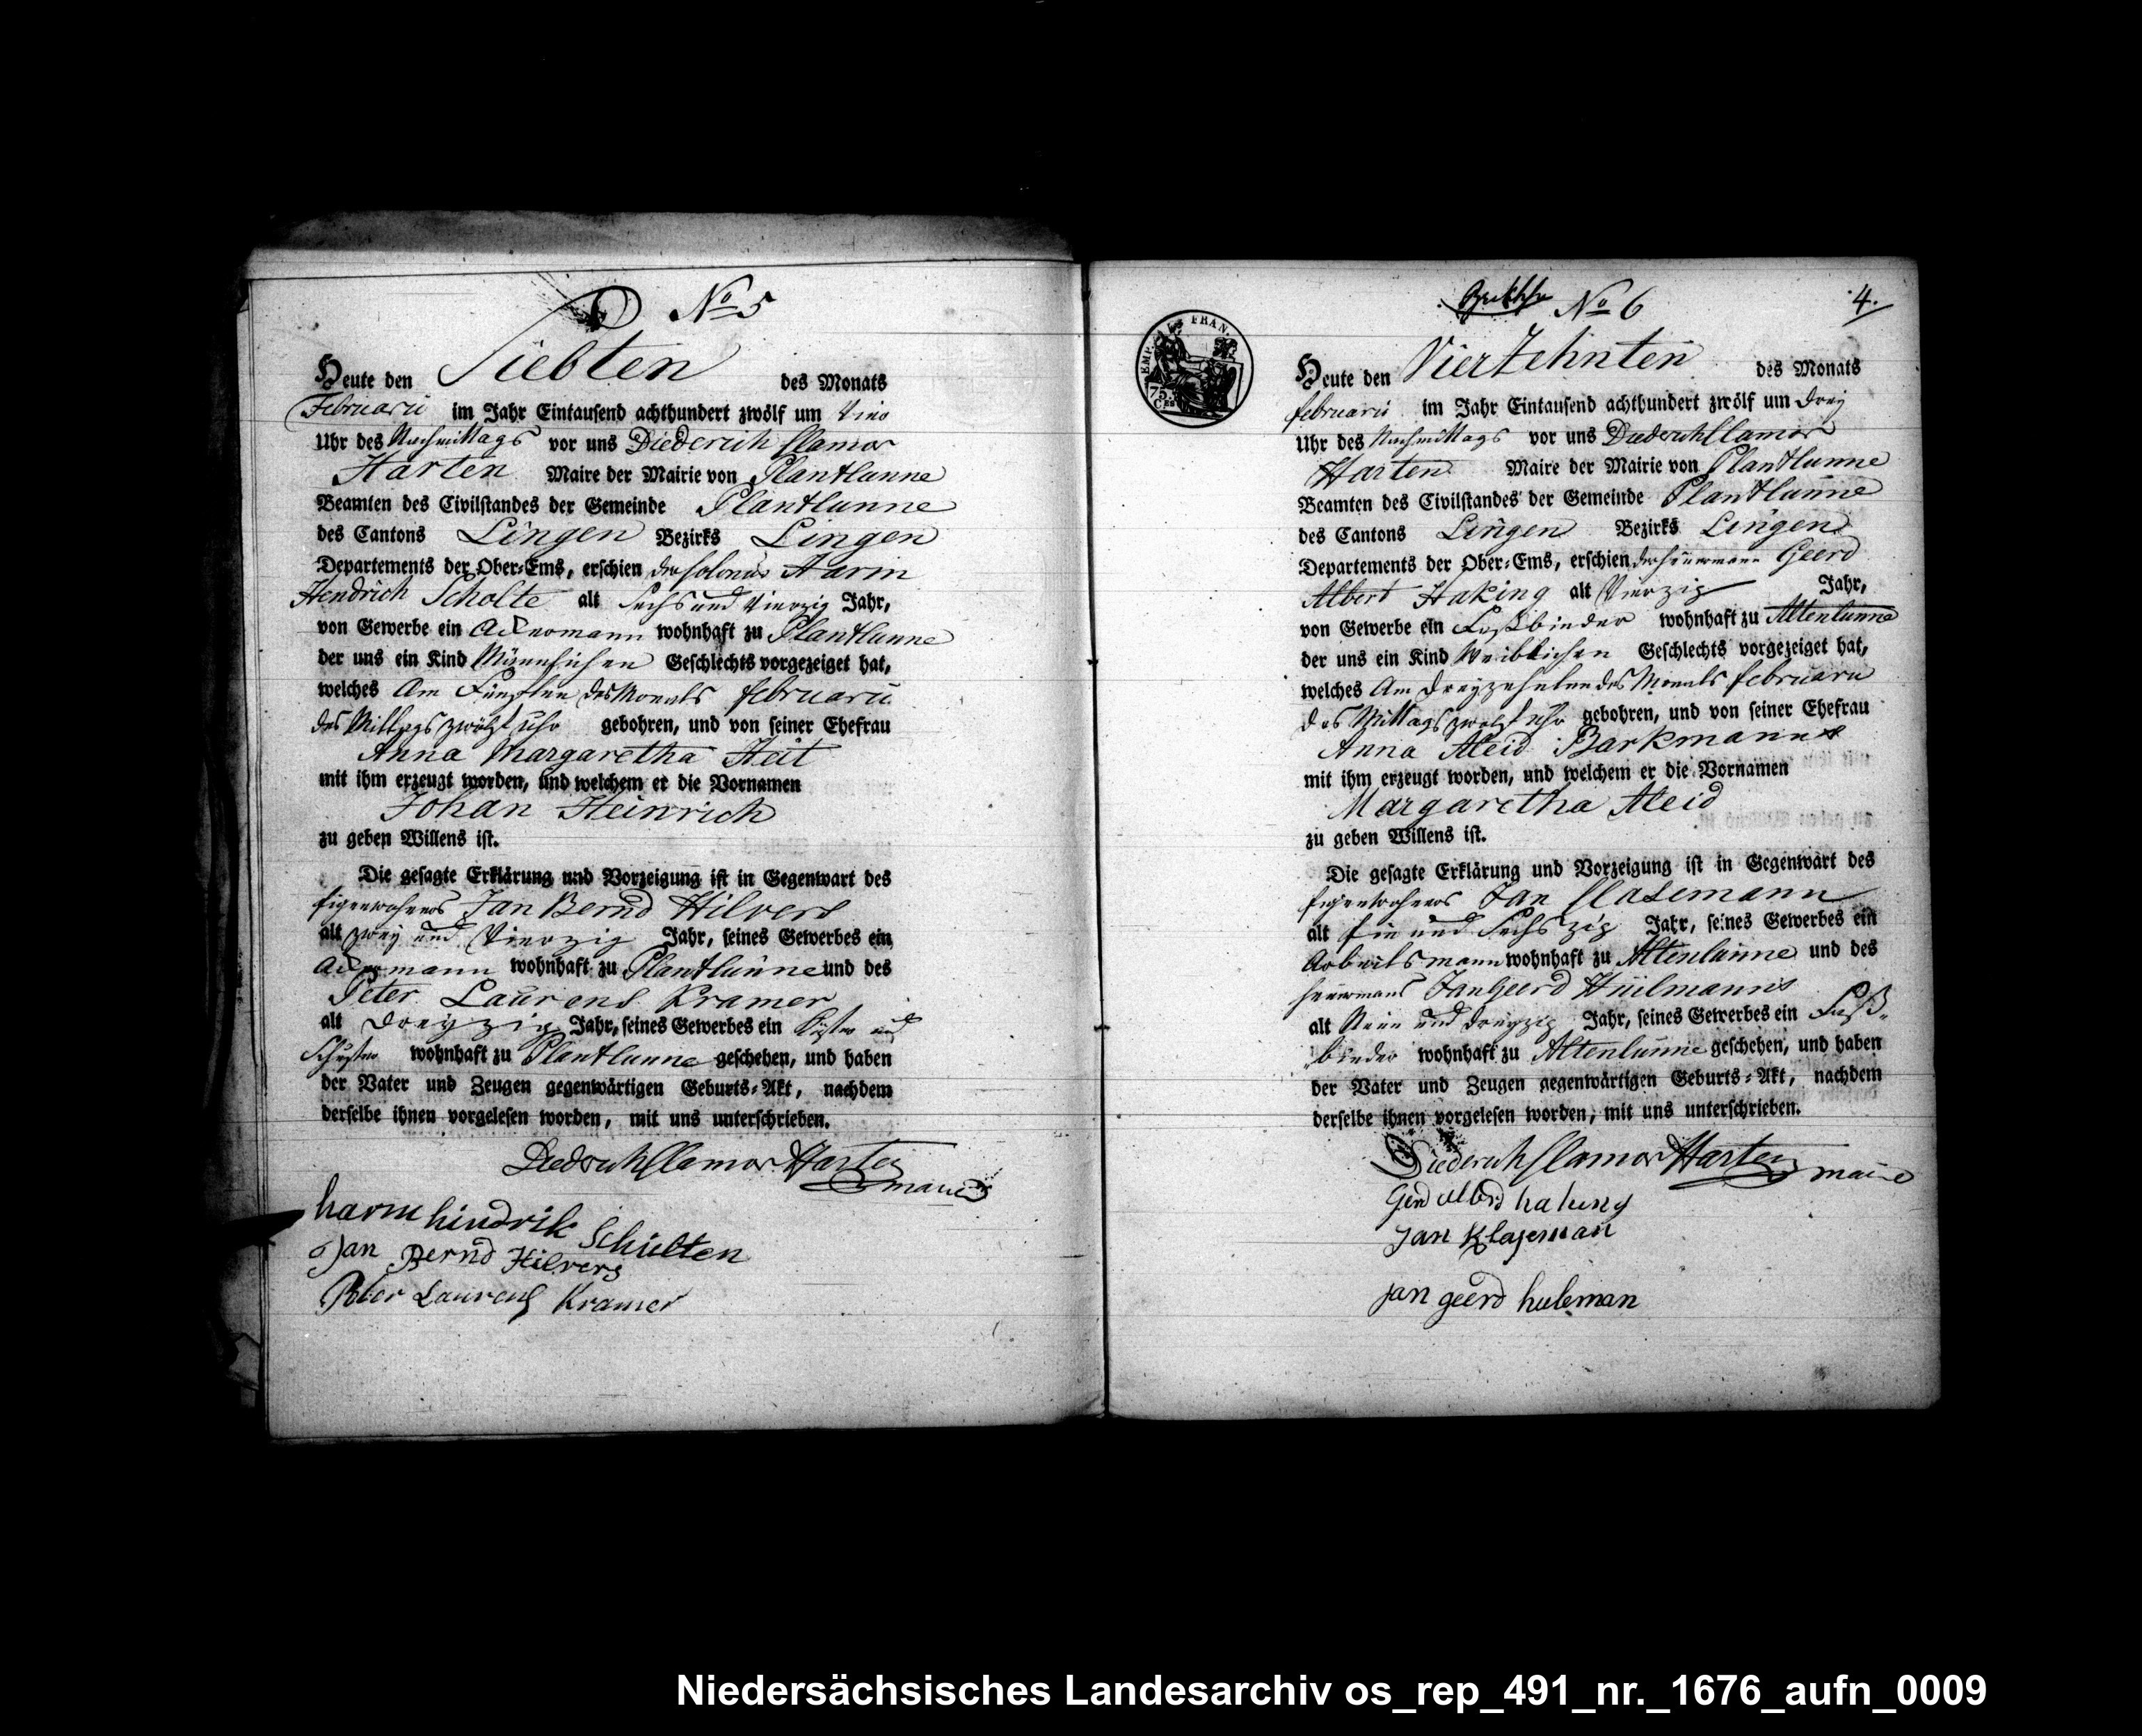 No 5
Heute den Siebten des Monats
Februarii im Jahr Eintausend achthundert zwölf um Vier
Uhr des Nachmittags vor uns Diederich Clamor
Harten Maire der Mairie von Plantlünne
Beamten des Civilstandes der Gemeinde Plantlunne
des Cantons Lingen Bezirks Lingen
Departements der Ober-Ems, erschien der Colonus Harm
Hendrich Scholte alt Sechs und Vierzig Jahr,
von Gewerbe ein Ackermann wohnhaft zu Plantlunne
der uns ein Kind Männlichen Geschlechts vorgezeiget hat,
welches Am Fünften des Monats februarii
des Mittags zwölf Uhr gebohren, und von seiner Ehefrau
Anna Margaretha Heit
mit ihm erzeugt worden, und welchem er die Vornamen
Johan Heinrich
zu geben Willens ist.
Die gesagte Erklärung und Vorzeigung ist in Gegenwart des
Eigenwohners Jan Bernd Hilvers
alt zwey und Vierzig Jahr, seines Gewerbes ein
Ackermann wohnhaft zu Plantlünne und des
Peter Laurens Kramer
alt Dreyzig Jahr, seines Gewerbes ein Küster und
wohnhaft zu Plantlunne geschehen, und haben
der Vater und Zeugen gegenwärtigen Geburts-Akt, nachdem
derselbe ihnen vorgelesen worden, mit uns unterschrieben.
Diederich Clamor Harten
maire
harm hindrik Schulten
Jan Bernd Hilvers
Peter Laurens Kramer
No 6
4.
EMP. FRAN.
75.
Heute den Vierzehnten des Monats
februarii im Jahr Eintausend achthundert zwölf um Drey
Uhr des Nachmittags vor uns Diederich Clamor
Harten Maire der Mairie von Plantlunne
Beamten des Civilstandes der Gemeinde Plantlünne
des Cantons Lingen Bezirks Lingen
Departements der Ober-Ems, erschien der Heuermann Geerd
Albert Haking alt Vierzig Jahr,
von Gewerbe ein Faßbinder wohnhaft zu Altenlünne
der uns ein Kind Weiblichen Geschlechts vorgezeiget hat,
welches Am Dreyzehnten des Monats februarii
des Mittags zwölf Uhr gebohren, und von seiner Ehefrau
Anna Aleid Barkmann
mit ihm erzeugt worden, und welchem er die Vornamen
Margaretha Aleid
zu geben Willens ist.
Die gesagte Erklärung und Vorzeigung ist in Gegenwart des
Eigenwohners Jan Clasemann
alt Ein und Sechszig Jahr, seines Gewerbes ein
Arbeitsmann wohnhaft zu Altenlünne und des
Heuermans Jan Geerd Hüilmanns
alt Neun und Dreyzig Jahr, seines Gewerbes ein Faß-
binder wohnhaft zu Altenlünne geschehen, und haben
der Vater und Zeugen gegenwärtigen Geburts-Akt, nachdem
derselbe ihnen vorgelesen worden, mit uns unterschrieben.
Diederich Clamor Harten maire
Gerd Albrd haking
Jan Klaseman
jan geerd huleman
Niedersächsisches Landesarchiv os_rep_491_nr._1676_aufn_0009